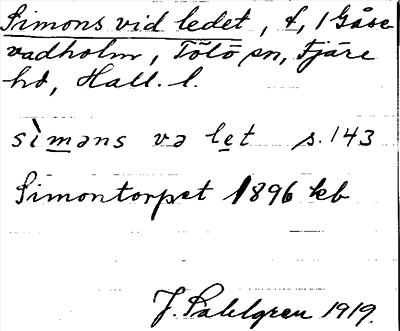 Simons vid ledet, t, 1 Gåse
vadholm, Tölö sn, Fjäre
hd, Hall. l.
sìməns və let s. 143
Simontorpet 1896 kb
J. Sahlgren 1919.